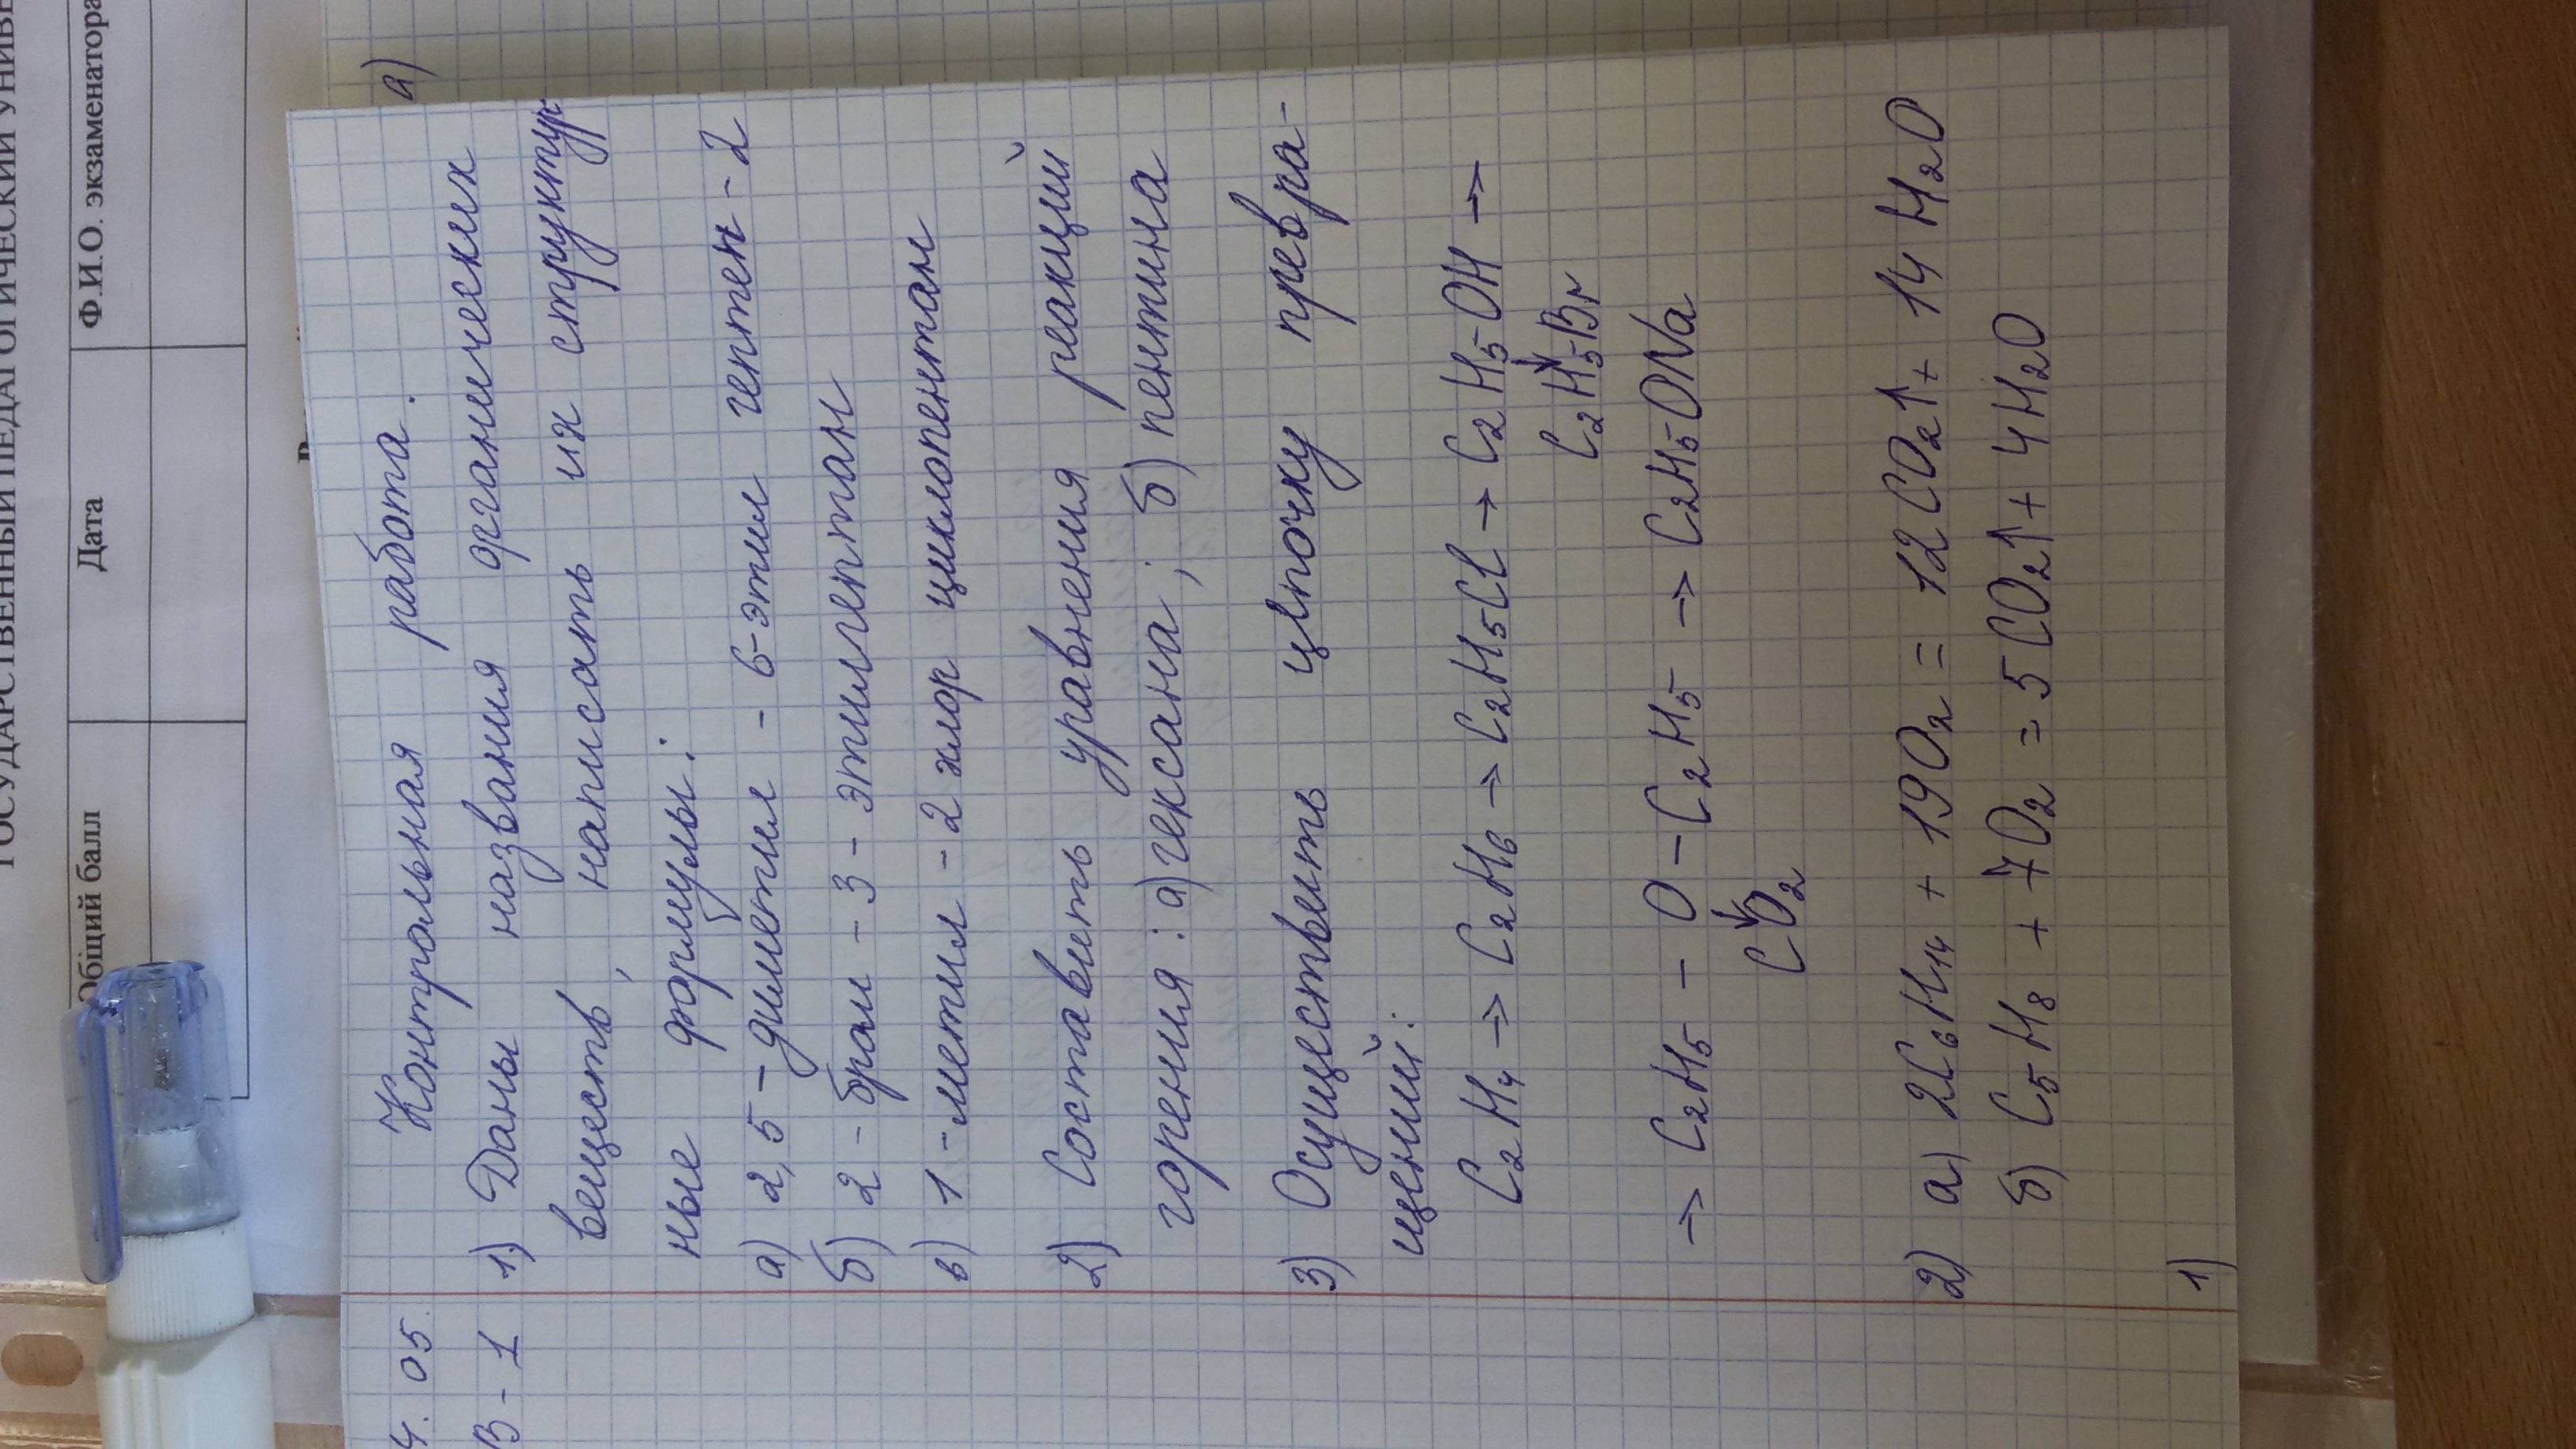 ГОСУДАРСТВЕННЫЙ ПЕДАГОГИЧЕСКИЙ УНИВЕ
Общий балл Дата Ф.И.О. экзаменатора
а)
4. 05. Контрольная работа.
В-1 1) Даны названия органических
веществ, написать их структур
ные формулы:
а) 2,5-диметил-6-этил гептен-2
б) 2-бром-3-этилгептан
в) 1-метил-2хлор циклопентан
2) Составить уравнения реакций
горения: а) гексана; б) пентина
3) Осуществить цепочку превра-
щений:
C₂H₄ → C₂H₆ → C₂H₅Cl → C₂H₅-OH →
↓
C₂H₅-Br
→ C₂H₅-O-C₂H₅ → C₂H₅-ONa
↓
CO₂
2) а) 2C₆H₁₄ + 19O₂ = 12CO₂↑ + 14H₂O
б) C₅H₈ + 7O₂ = 5CO₂↑ + 4H₂O
1)